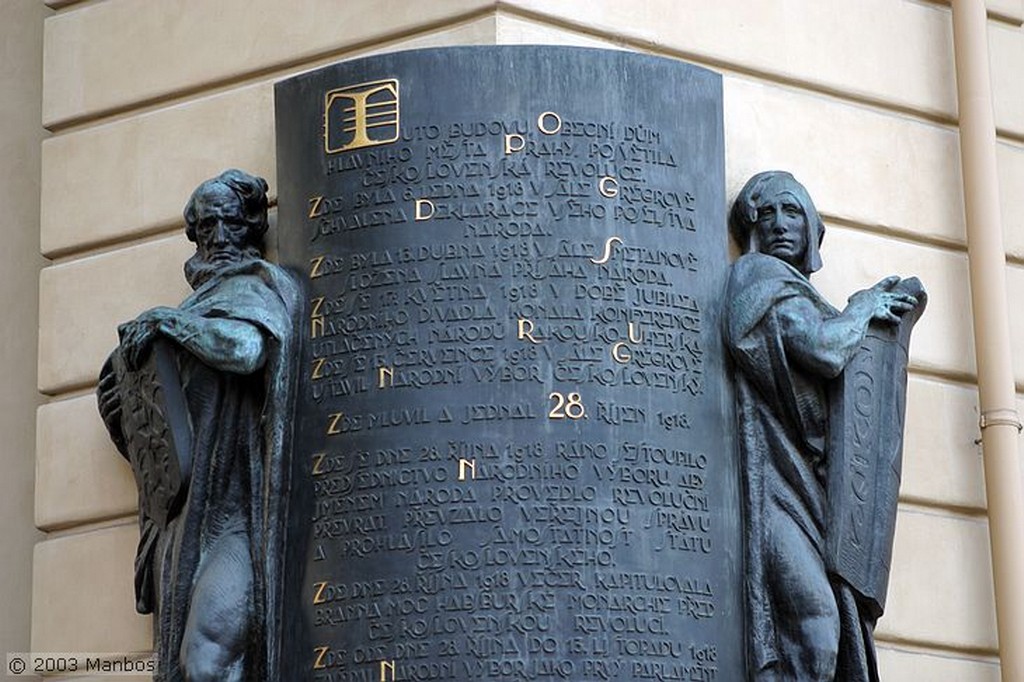 TUTO BUDOVU, OBECNÍ DŮM
HLAVNÍHO MĚSTA PRAHY, POSVĚTILA
ČESKOSLOVENSKÁ REVOLUCE.
ZDE BYLA 6. LEDNA 1918 V SÁLE GRÉGROVĚ
SCHVÁLENA DEKLARACE VŠEHO POSELSTVA
NÁRODA.
ZDE BYLA 13. DUBNA 1918 V SÁLE SMETANOVĚ
SLOŽENA SLAVNÁ PŘÍSAHA NÁRODA.
ZDE SE 17. KVĚTNA 1918 V DOBĚ JUBILEA
NÁRODNÍHO DIVADLA KONALA KONFERENCE
UTLAČENÝCH NÁRODŮ RAKOUSKO UHERSKA
ZDE SE 13. ČERVENCE 1918 V SÁLE GRÉGROVĚ
USTAVIL NÁRODNÍ VÝBOR ČESKOSLOVENSKÝ.
ZDE MLUVIL A JEDNAL 28. ŘÍJEN 1918.
ZDE SE DNE 28. ŘÍJNA 1918 RÁNO SESTOUPILO
PŘEDSEDNICTVO NÁRODNÍHO VÝBORU, ABY
JMÉNEM NÁRODA PROVEDLO REVOLUČNÍ
PŘEVRAT, PŘEVZALO VEŘEJNOU SPRÁVU
A PROHLÁSILO SAMOSTATNOST STÁTU
ČESKOSLOVENSKÉHO.
ZDE DNE 28. ŘÍJNA 1918 VEČER KAPITULOVALA
BRANNÁ MOC HABSBURSKÉ MONARCHIE PŘED
ČESKOSLOVENSKOU REVOLUCÍ.
ZDE ODE DNE 28. ŘÍJNA DO 13. LISTOPADU 1918
NÁRODNÍ VÝBOR JAKO PRVÝ PARLAMENT
© 2003 Manbos